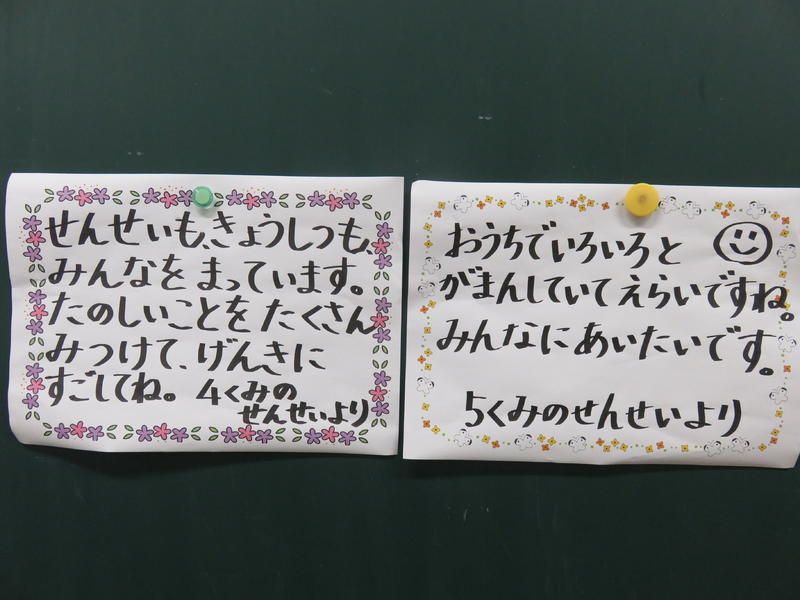 せんせいも、きょうしつも、
みんなを まっています。
たのしいことを たくさん
みつけて、げんきに
すごしてね。 4くみの
せんせいより
おうちで いろいろと
がまんしていて えらいですね。
みんなに あいたいです。
5くみのせんせいより